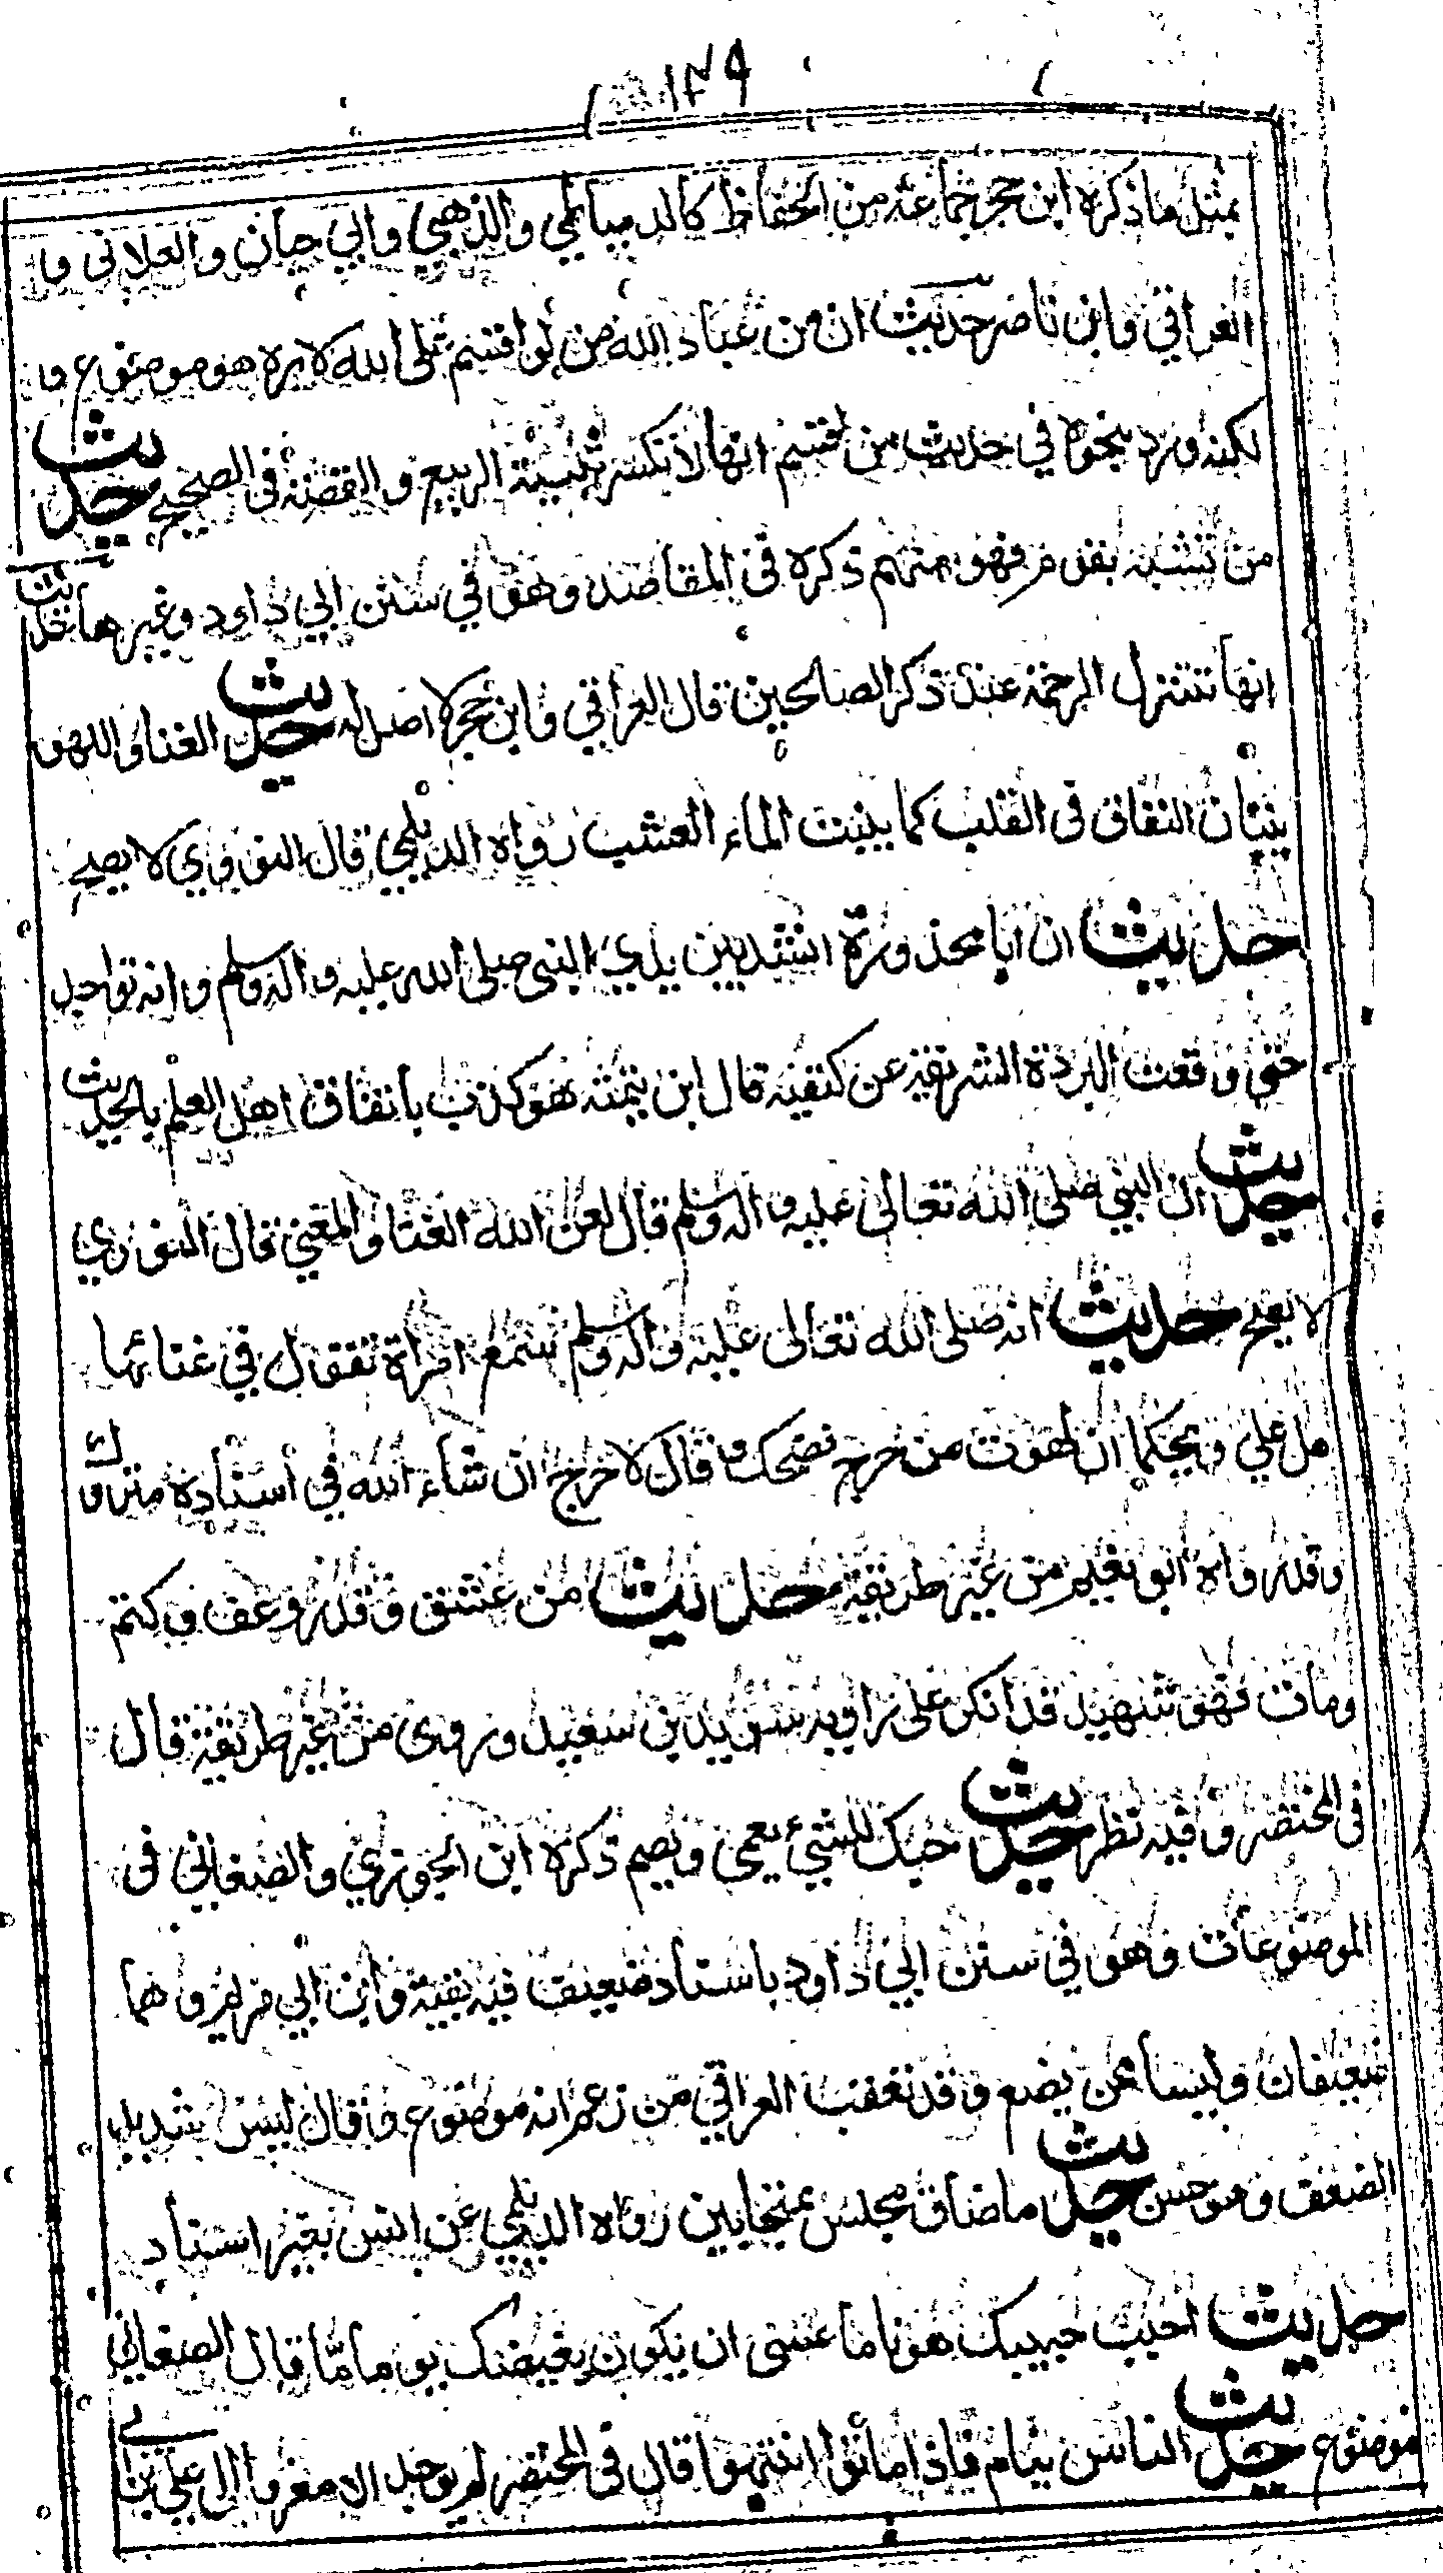 ١٢٩
بمثل ما ذكره ابن حجر جماعة من الحفاظ كالدمياطي والذهبي وابي حيان والعلائى و
العراقي وابن ناصر حديث ان من عباد الله من لو اقسم على الله لابره هو موضوع و
لكنه ورد بنحوه في حديث من اقسم انها لا تكسر ثنية الربيع والقصة فى الصحيح حديث
من تشبه بقوم فهو منهم ذكره فى المقاصد وهو في سنن ابي داود وغيرها حديث
انها تتنزل الرحمة عند ذكر الصالحين قال العراقي وابن حجر لا اصل له حديث الغنا واللهو
ينبتان النفاق فى القلب كما ينبت الماء العشب رواه الديلمي قال النووي لا يصح
حديث ان ابا محذورة انشد بين يدي النبى صلى الله عليه واله وسلم وانه تواجد
حتى وقعت البردة الشريفة عن كتفيه قال ابن تيمية هو كذب باتفاق اهل العلم بالحديث
حديث ان النبي صلى الله تعالى عليه واله وسلم قال لعن الله الغنا والمغني قال النووي
لا يصح حديث انه صلى الله تعالى عليه واله وسلم سمع امراة تقول في غنائها
هل علي ويحكما ان لهوت من حرج فضحك وقال لا حرج ان شاء الله في اسناده متروك
وقد رواه ابو نعيم من غير طريقه حديث من عشق وقدر وعف وكتم
ومات فهو شهيد قد انكر على راويه سويد بن سعيد وروى من غير طريقة قال
فى المختصر وفيه نظر حديث حبك للشيء يعمى ويصم ذكره ابن الجوزي والصغاني فى
الموضوعات وهو في سنن ابي داود باسناد ضعيف فيه بقية وابن ابي مريم وهما
ضعيفان وليسا ممن يضع وقد تعقب العراقي من زعم انه موضوع وقال ليس بشديد
الضعف وهو حسن حديث ما ضاق مجلس بمتحابين رواه الديلمي عن انس بغير اسناد
حديث احبب حبيبك هونا ما عسى ان يكون بغيضك يوما ما قال الصغاني
موضوع حديث الناس نيام فاذا ماتوا انتبهوا قال فى المختصر لم يوجد الا معزوا الى علي بن ابي